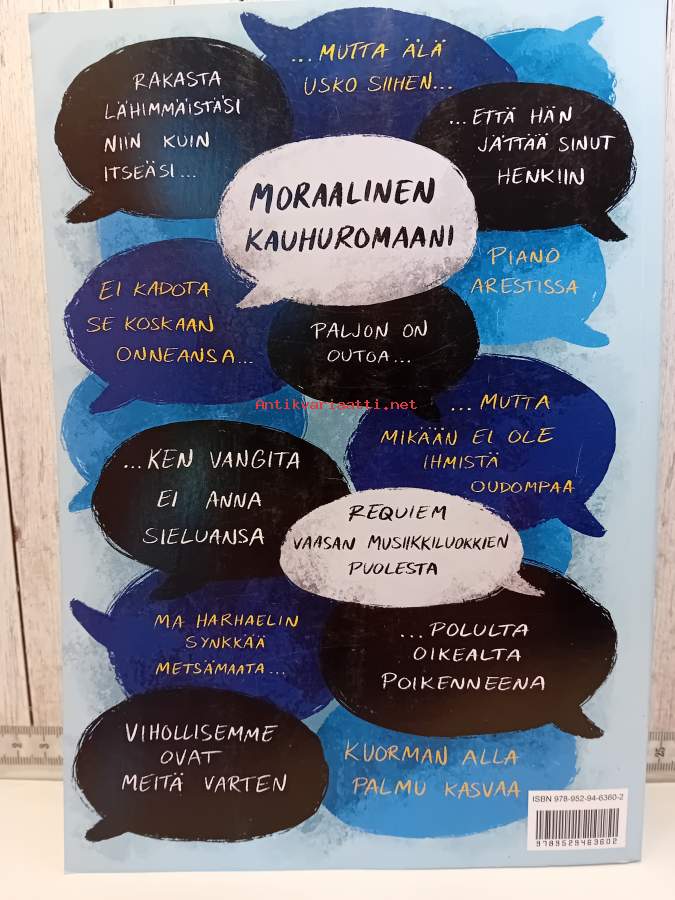 RAKASTA
LÄHIMMÄISTÄSI
NIIN KUIN
ITSEÄSI...
...MUTTA ÄLÄ
USKO SIIHEN...
...ETTÄ HÄN
JÄTTÄÄ SINUT
HENKIIN
MORAALINEN
KAUHUROMAANI
EI KADOTA
SE KOSKAAN
ONNEANSA...
PIANO
ARESTISSA
PALJON ON
OUTOA...
Antikvariaatti.net
...MUTTA
MIKÄÄN EI OLE
IHMISTÄ
OUDOMPAA
...KEN VANGITA
EI ANNA
SIELUANSA
REQUIEM
VAASAN MUSIIKKILUOKKIEN
PUOLESTA
MA HARHAELIN
SYNKKÄÄ
METSÄMAATA...
...POLULTA
OIKEALTA
POIKENNEENA
VIHOLLISEMME
OVAT
MEITÄ VARTEN
KUORMAN ALLA
PALMU KASVAA
ISBN 978-952-94-6360-2
9789529463602